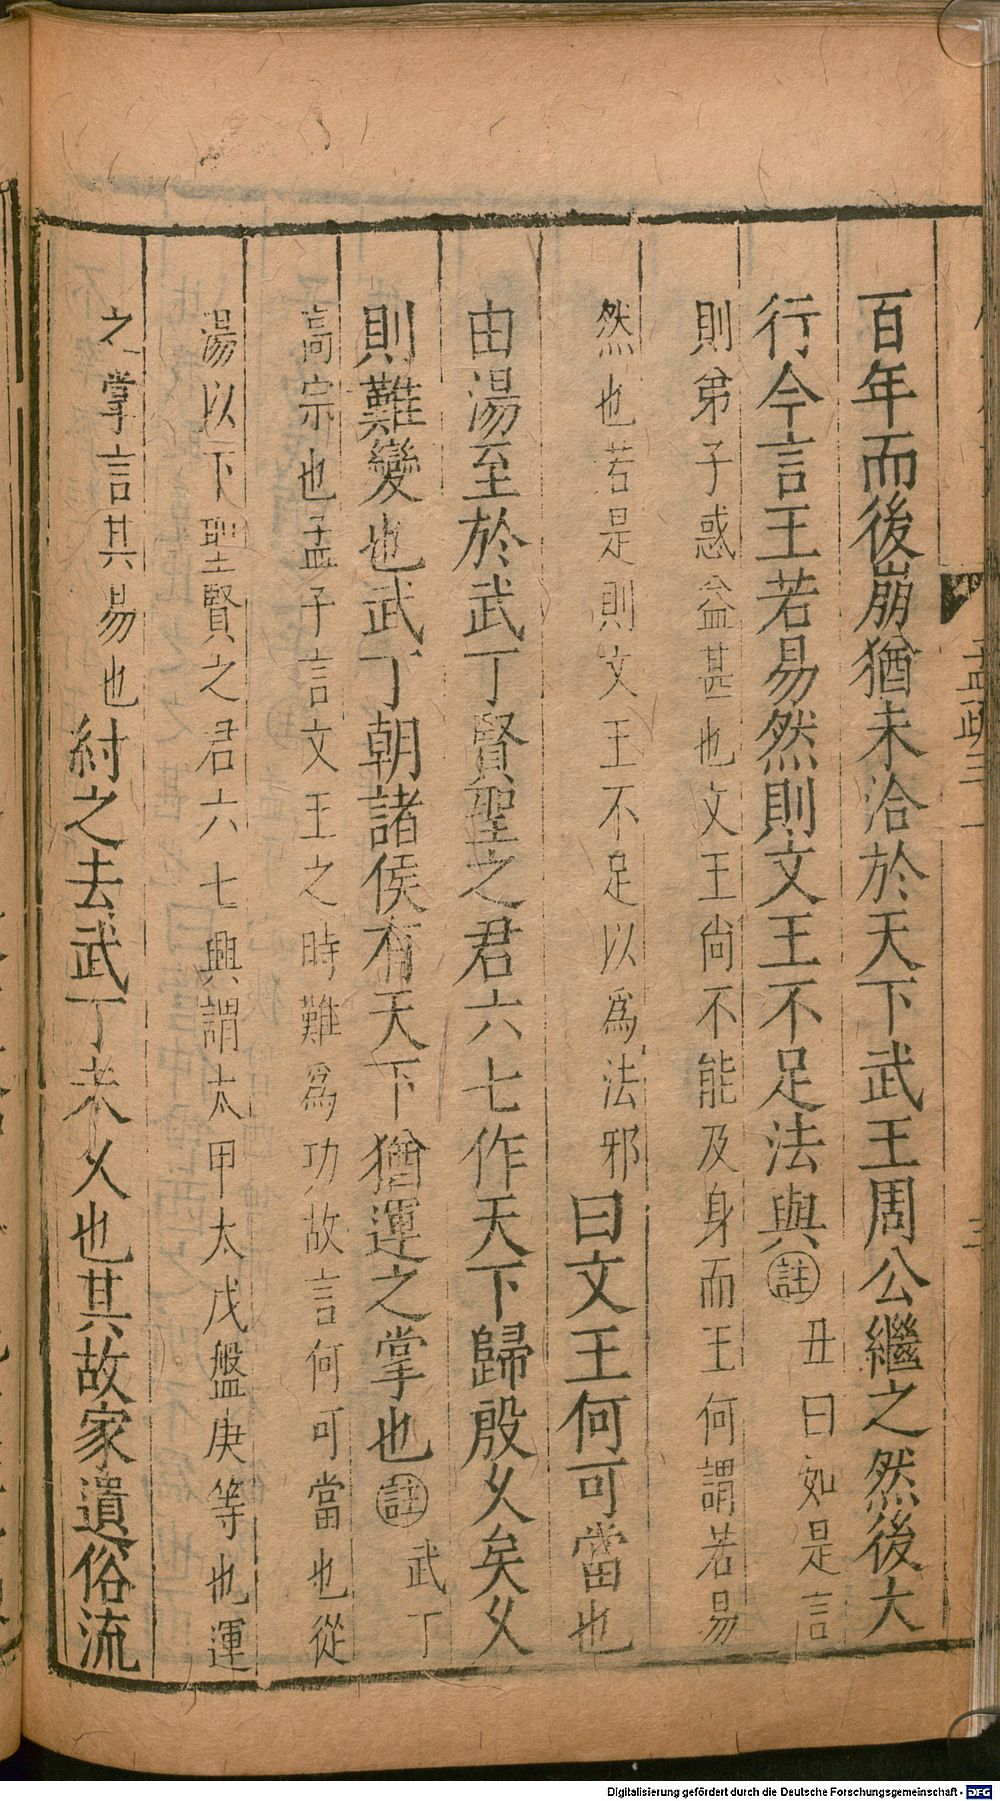 百年而後崩猶未洽於天下武王周公繼之然後大
行今言王若易然則文王不足法與註丑曰如是言
則弟子惑益甚也文王尚不能及身而王何謂若易
然也若是則文王不足以爲法邪曰文王何可當也
由湯至於武丁賢聖之君六七作天下歸殷乆矣乆
則難變也武丁朝諸侯有天下猶運之掌也註武丁
高宗也孟子言文王之時難爲功故言何可當也從
湯以下聖賢之君六七興謂太甲太戊盤庚等也運
之掌言其易也紂之去武丁未乆也其故家遺俗流
孟疏三
三
Digitalisierung gefördert durch die Deutsche Forschungsgemeinschaft - DFG